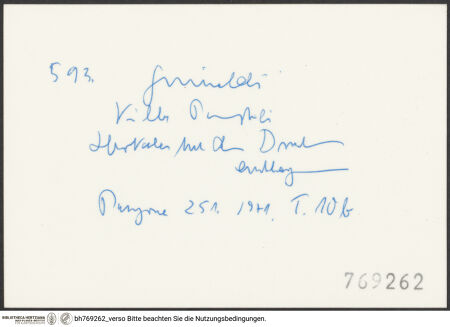 593. Grimaldi
Villa Pamphili
Herkules mit dem Drachen
Paragone 251. 1971. T. 10b
769262
BIBLIOTHECA HERTZIANA
bh769262_verso Bitte beachten Sie die Nutzungsbedingungen.